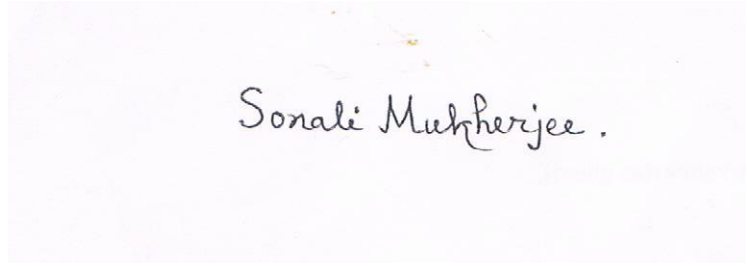 Sonali Mukherjee.